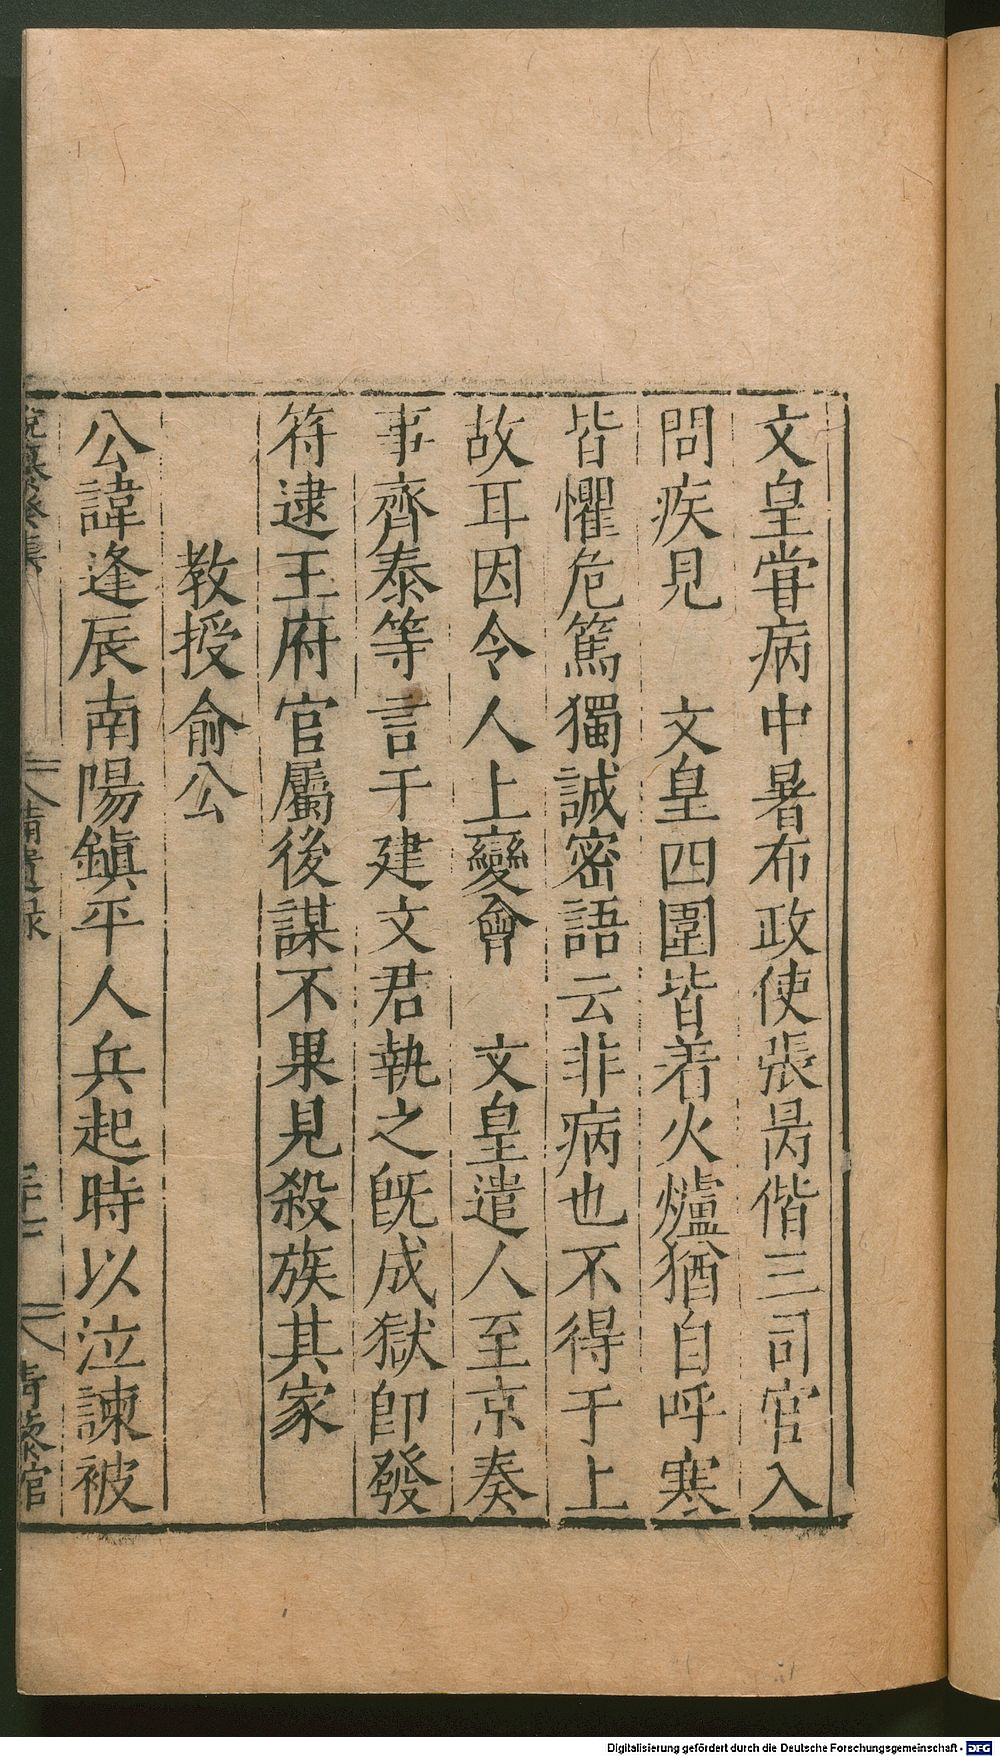 文皇甞病中暑布政使張昺偕三司官入
問疾見　文皇四圍皆着火爐猶自呼寒
皆懼危篤獨誠密語云非病也不得于上
故耳因令人上變會　文皇遣人至京奏
事齊泰等言于建文君執之旣成獄卽發
符逮王府官屬後謀不果見殺族其家
教授俞公
公諱逢辰南陽鎮平人兵起時以泣諫被
備遺錄
Digitalisierung gefördert durch die Deutsche Forschungsgemeinschaft - DFG